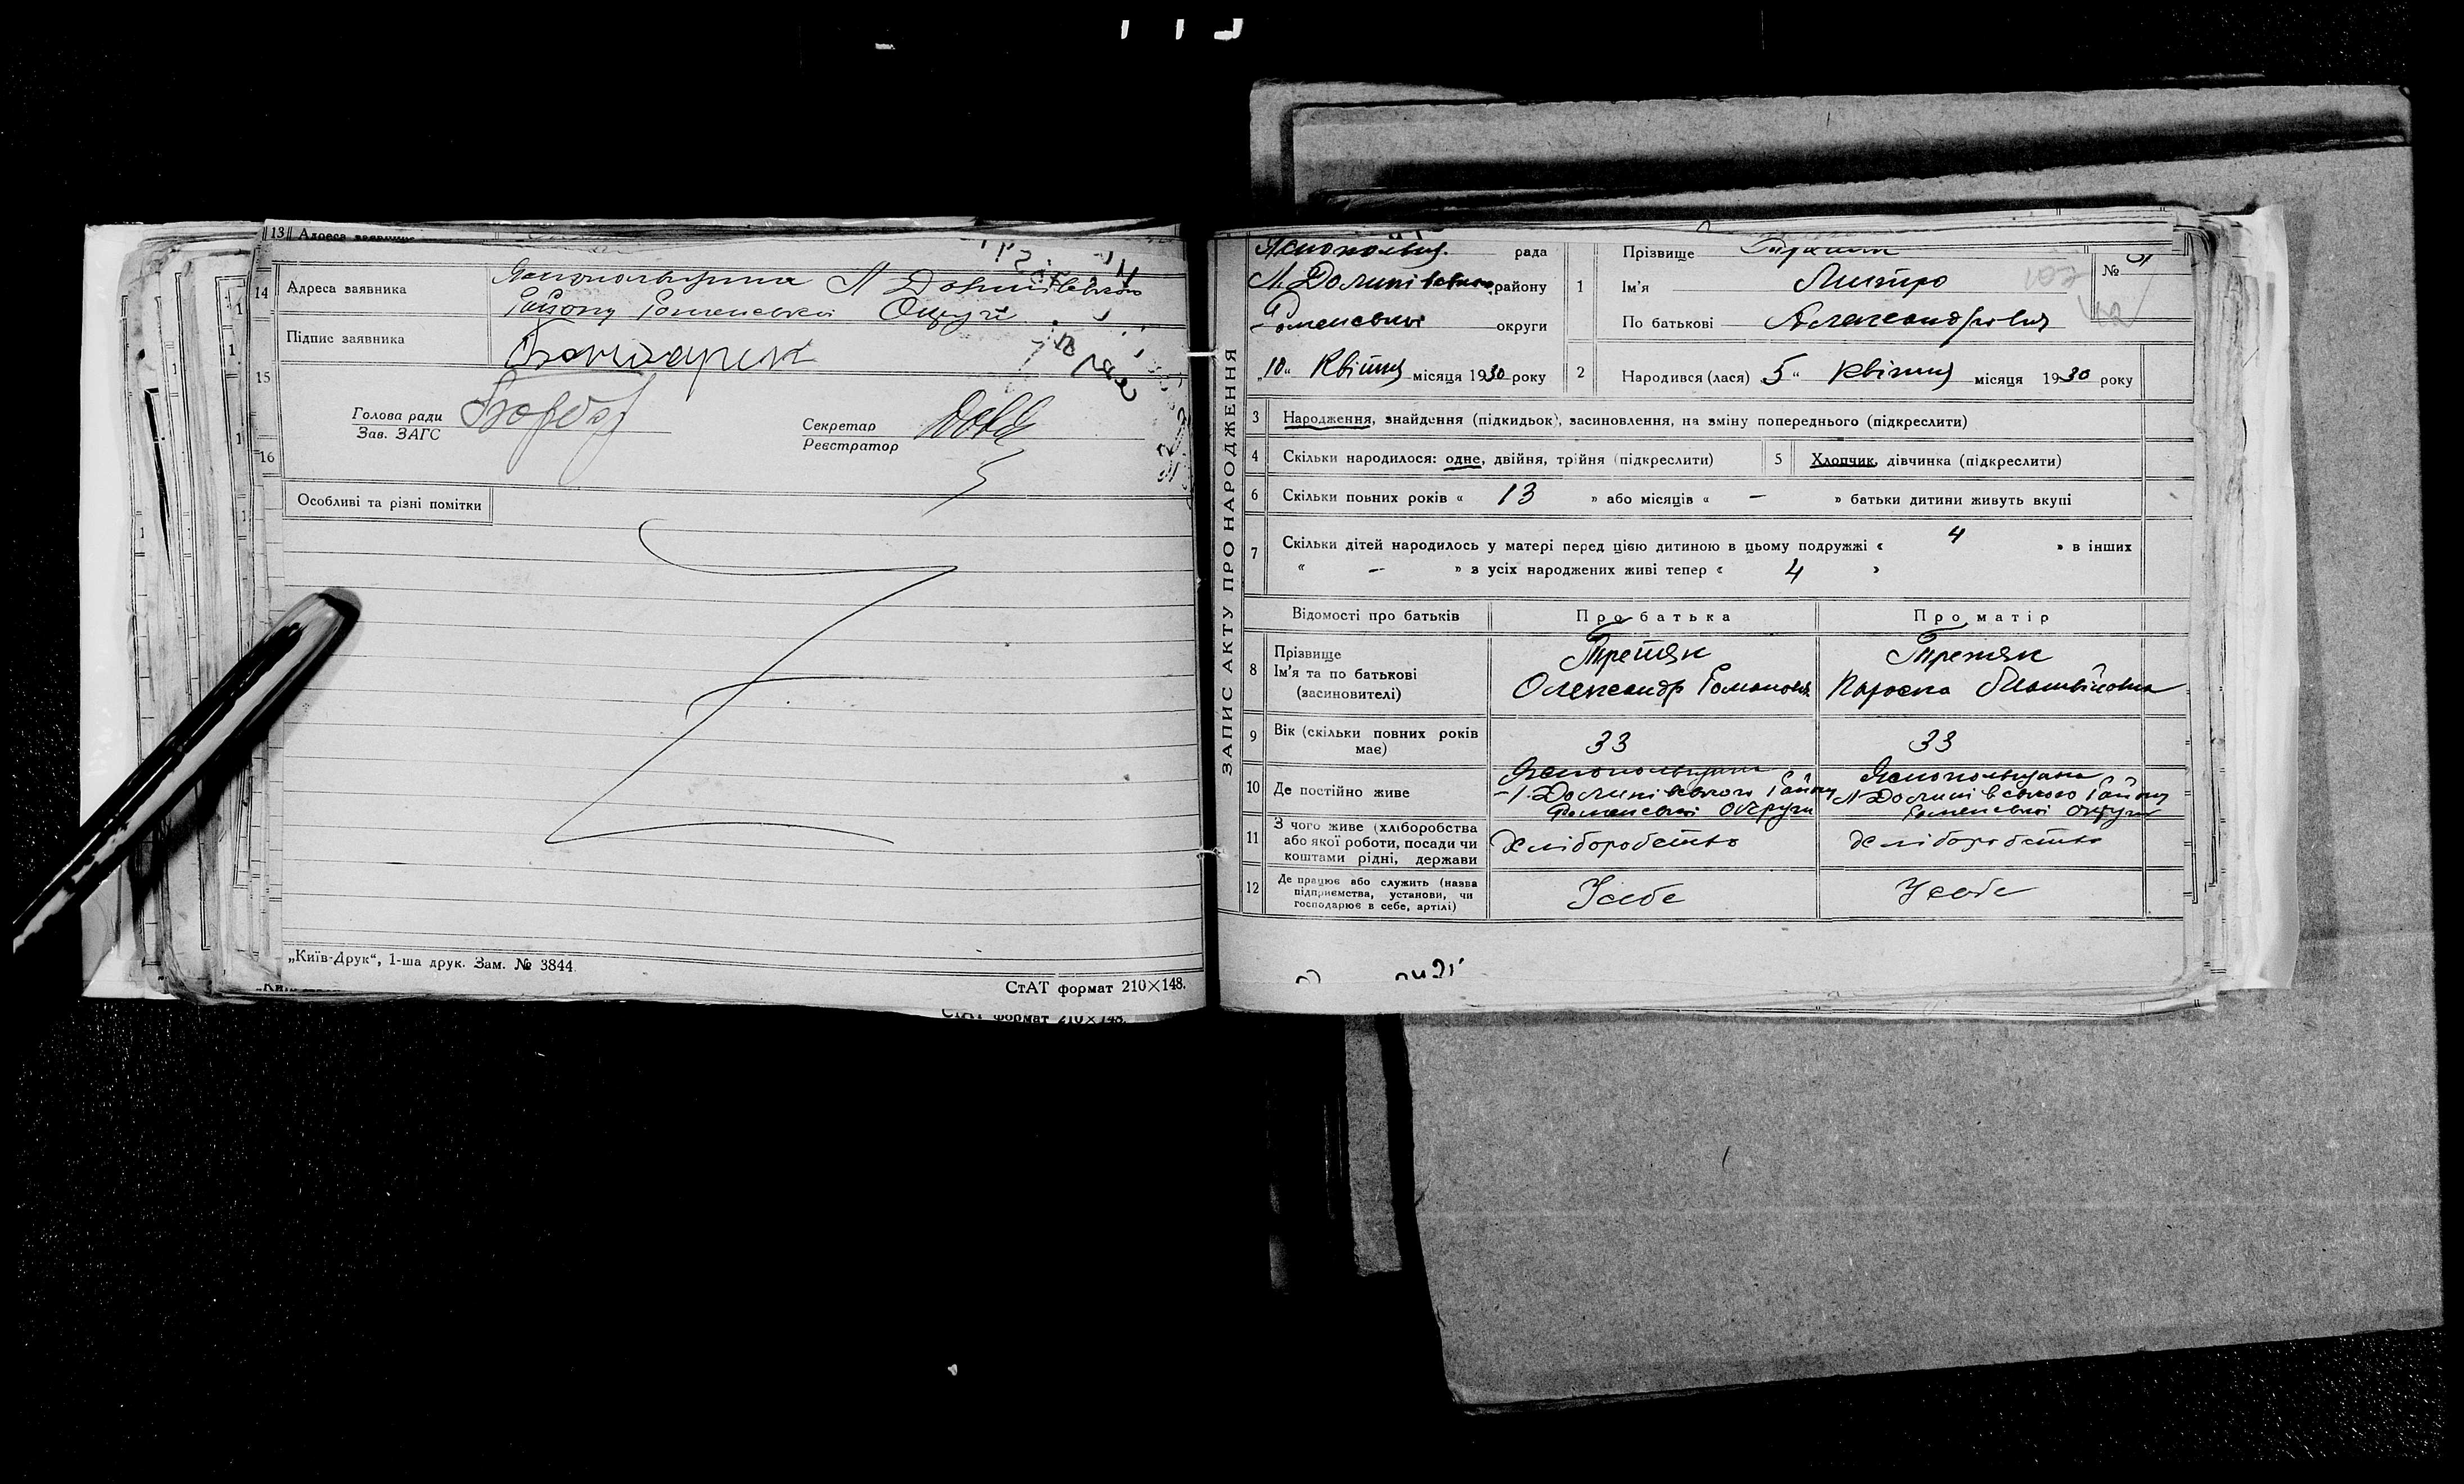 13 Адреса заявника
14 Адреса заявника
Яснопольщина Л Долинівського
Району Роменської Округи
Підпис заявника
Бондарик
15
Голова ради
Зав. ЗАГС
Секретар
Реєстратор
16
Особливі та різні помітки
„Київ-Друк“, 1-ша друк. Зам. № 3844.
СтАТ формат 210×148.
СтАТ формат 210×148.
ЗАПИС АКТУ ПРО НАРОДЖЕННЯ
Яснопольщ. рада
Л. Долинівського району
Роменської округи
„10“ Квітня місяця 1930 року
1 Прізвище
Ім'я Дмитро
По батькові Александрович
№
2 Народився (лася) 5 “ Квітня місяця 1930 року
3 Народження, знайдення (підкидьок), засиновлення, на зміну попереднього (підкреслити)
4 Скільки народилося: одне, двійня, трійня (підкреслити) 5 Хлопчик, дівчинка (підкреслити)
6 Скільки повних років « 13 » або місяців « – » батьки дитини живуть вкупі
7 Скільки дітей народилось у матері перед цією дитиною в цьому подружжі « 4 » в інших
« – » з усіх народжених живі тепер « 4 »
Відомості про батьків Про батька Про матір
8 Прізвище
Ім'я та по батькові
(засиновителі)
Третяк
Олександр Романович
Третяк
Параска Матвіївна
9 Вік (скільки повних років має) 33 33
10 Де постійно живе
Яснопольщина
Л. Долинівського Району
Роменської Округи
Яснопольщина
Л Долинівського Району
Роменської Округи
11 З чого живе (хліборобства
або якої роботи, посади чи
коштами рідні, держави
Хліборобство
Хліборобство
12 Де працює або служить (назва
підприємства, установи, чи
господарює в себе, артілі)
У себе
У себе